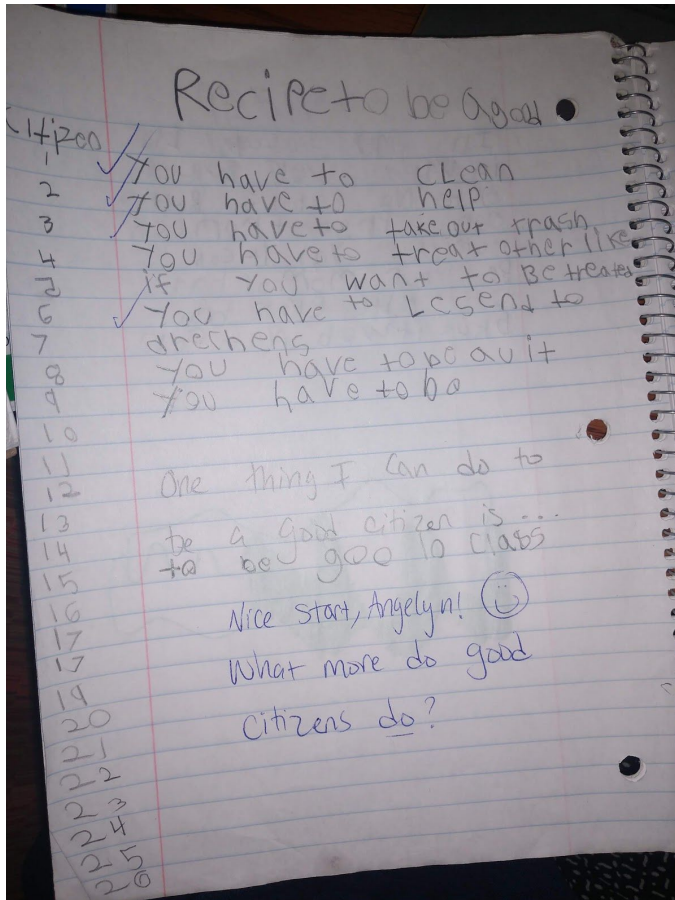 Recipe to be a good
Citizen
1 You have to clean
2 You have to help
3 You have to take out trash
4 You have to treat other like
5 if you want to Be treated
6 You have to Lesend to
7 drechens
8 You have to be qu it
9 You have to be
10
11
12 One thing I can do to
13
14 be a good citizen is...
15 to be goo in class
16 Nice start, Angelyn!
17
17 What more do good
19
20 citizens do?
21
22
23
24
25
26